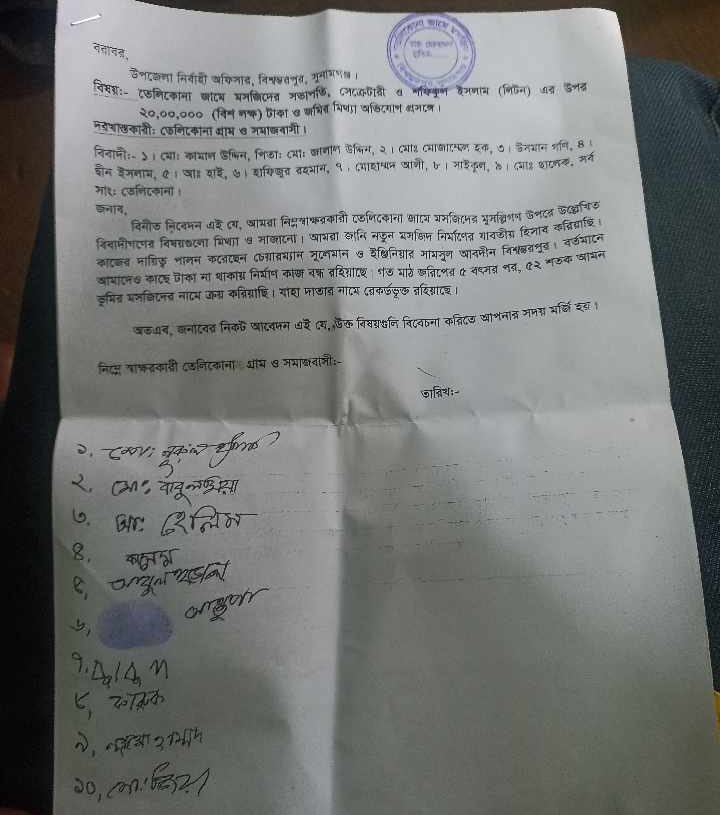 বরাবর,
উপজেলা নির্বাহী অফিসার, বিশ্বম্ভরপুর, সুনামগঞ্জ।
বিষয়:- তেলিকোনা জামে মসজিদের সভাপতি, সেক্রেটারী ও শফিকুল ইসলাম (লিটন) এর উপর
২০,০০,০০০ (বিশ লক্ষ) টাকা ও জমির মিথ্যা অভিযোগ প্রসঙ্গে।
দরখাস্তকারী: তেলিকোনা গ্রাম ও সমাজবাসী।
বিবাদী:- ১। মো: কামাল উদ্দিন, পিতা: মো: জালাল উদ্দিন, ২। মোঃ মোজাম্মেল হক, ৩। উসমান গণি, ৪।
দ্বীন ইসলাম, ৫। আঃ হাই, ৬। হাফিজুর রহমান, ৭। মোহাম্মদ আলী, ৮। সাইকুল, ৯। মোঃ ছালেক, সর্ব
সাং: তেলিকোনা।
জনাব,
বিনীত নিবেদন এই যে, আমরা নিম্নস্বাক্ষরকারী তেলিকোনা জামে মসজিদের মুসল্লিগণ উপরে উল্লেখিত
বিবাদীগণের বিষয়গুলো মিথ্যা ও সাজানো। আমরা জানি নতুন মসজিদ নির্মাণের যাবতীয় হিসাব করিয়াছি।
কাজের দায়িত্ব পালন করেছেন চেয়ারম্যান সুলেমান ও ইঞ্জিনিয়ার সামসুল আবদীন বিশ্বম্ভরপুর। বর্তমানে
আমাদেও কাছে টাকা না থাকায় নির্মাণ কাজ বন্ধ রহিয়াছে। গত মাঠ জরিপের ৫ বৎসর পর, ৫২ শতক আমন
ভূমির মসজিদের নামে ক্রয় করিয়াছি। যাহা দাতার নামে রেকর্ডভূক্ত রহিয়াছে।
অতএব, জনাবের নিকট আবেদন এই যে, উক্ত বিষয়গুলি বিবেচনা করিতে আপনার সদয় মর্জি হয়।
নিম্নে স্বাক্ষরকারী তেলিকোনা গ্রাম ও সমাজবাসী:-
তারিখ:-
১. মোঃ
২. মোঃ বাবুল মিয়া
৩. আঃ হেলিম
৪. কাসেম
৫, আবুল
৬,
৭.
৮, ফারুক
৯,
১০, মোঃ